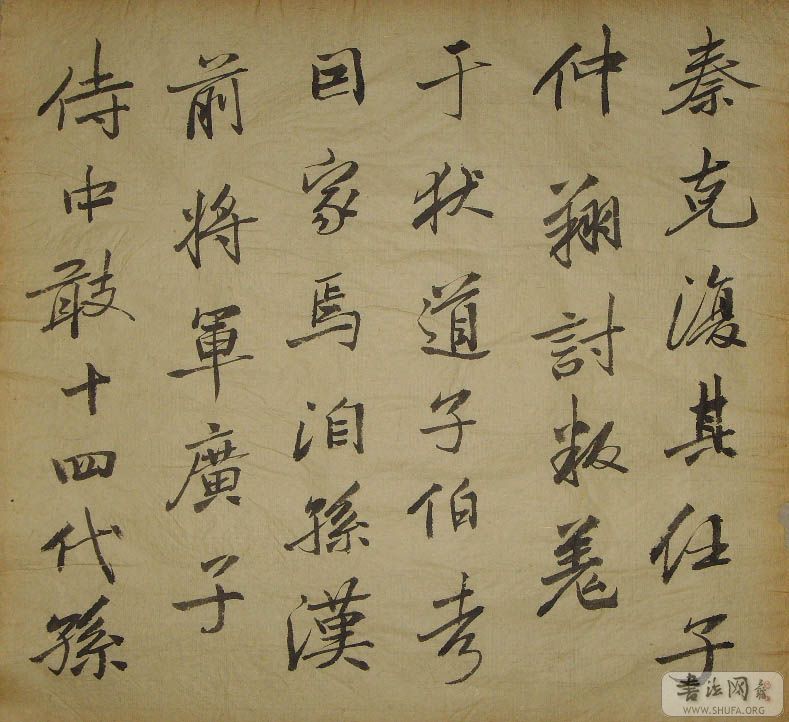 秦克復其任子
仲翔討叛羌
于狄道子伯考
因家焉洎孫漢
前將軍廣子
侍中敢十四代孫
书法网
WWW.SHUFA.ORG